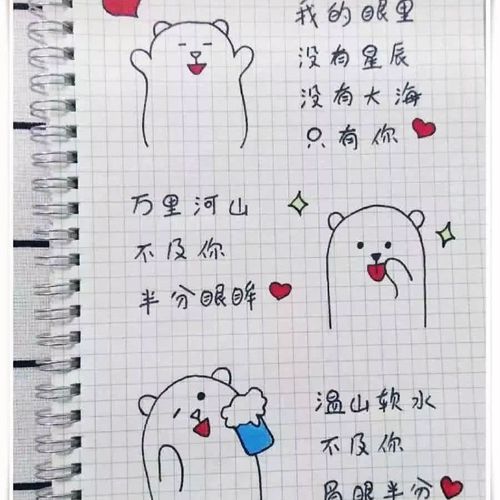 我的眼里
没有星辰
没有大海
只有你
万里河山
不及你
半分眼眸
温山软水
不及你
眉眼半分